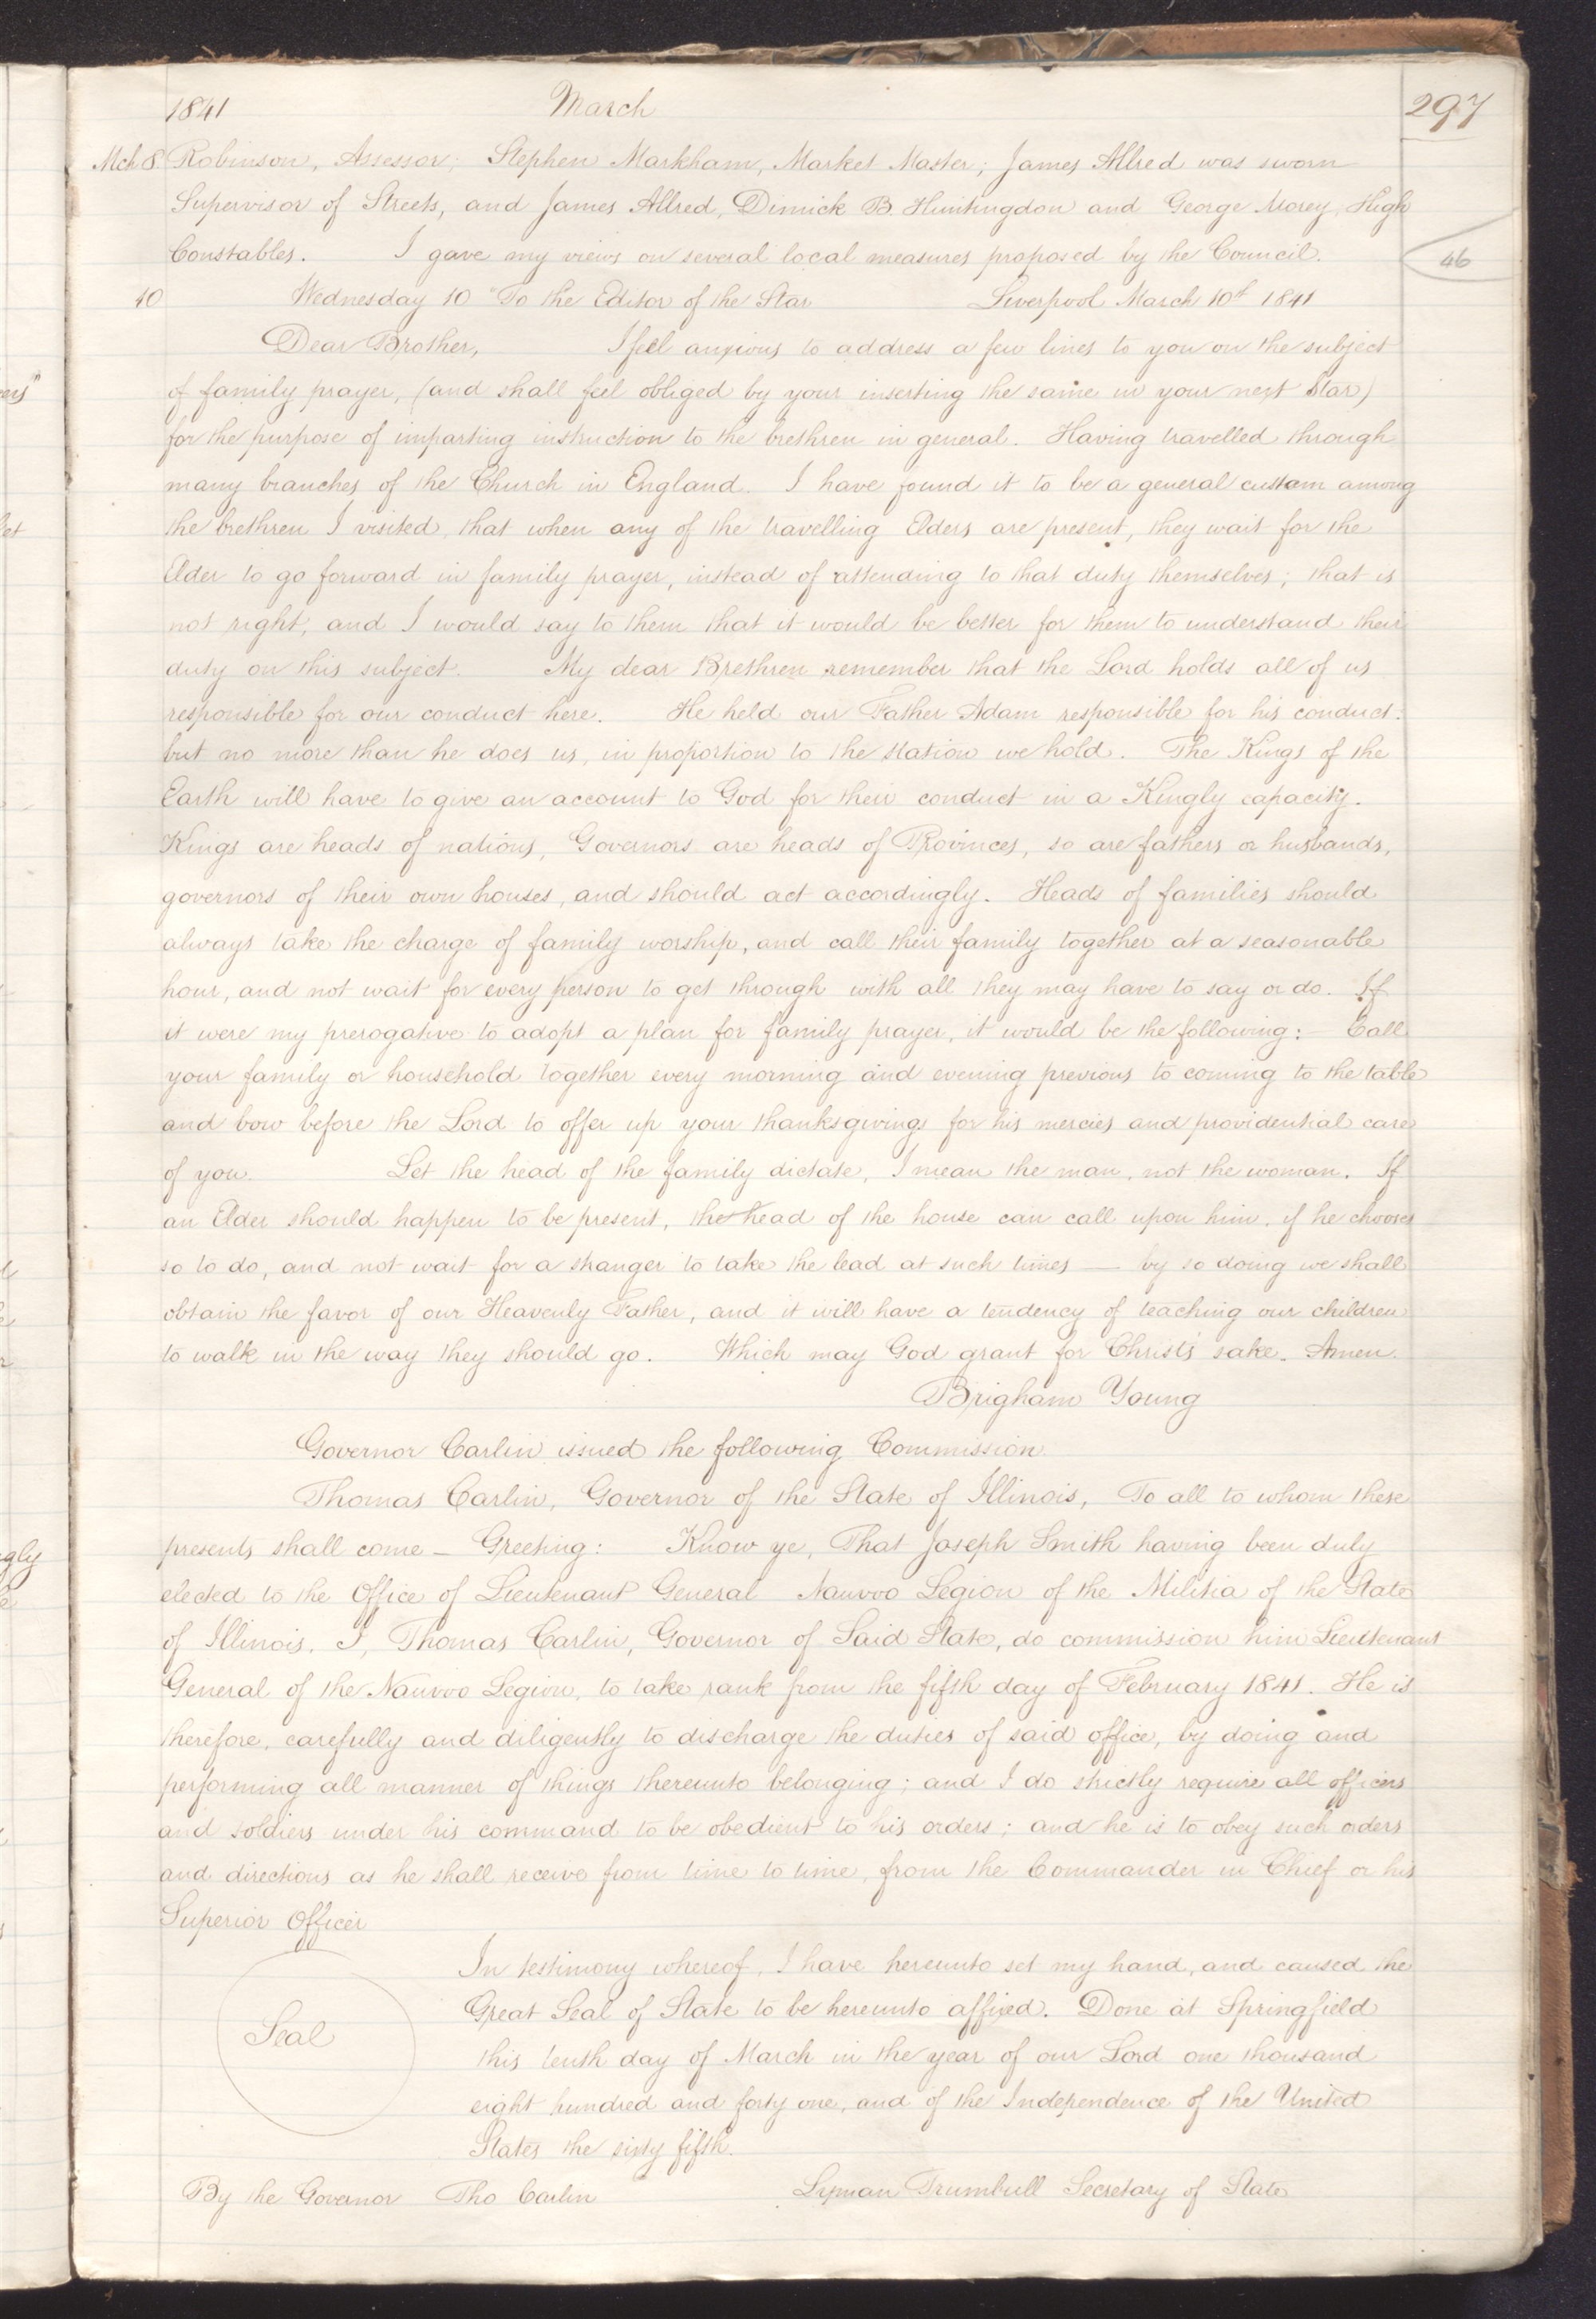 1841 March 297
Mch 8. Robinson, Assessor; Stephen Markham, Market Master; James Allred was sworn
Supervisor of Streets, and James Allred, Dimick B. Huntingdon and George Morey, High
Constables. I gave my views on several local measures proposed by the Council.
46
10 Wednesday 10 "To the Editor of the Star Liverpool March 10th 1841
Dear Brother, I feel anxious to address a few lines to you on the subject
of family prayer, (and shall feel obliged by your inserting the same in your next Star)
for the purpose of imparting instruction to the brethren in general. Having travelled through
many branches of the Church in England. I have found it to be a general custom among
the brethren I visited, that when any of the travelling Elders are present, they wait for the
Elder to go forward in family prayer, instead of attending to that duty themselves; that is
not right, and I would say to them that it would be better for them to understand their
duty on this subject. My dear Brethren remember that the Lord holds all of us
responsible for our conduct here. He held our Father Adam responsible for his conduct.
but no more than he does us, in proportion to the station we hold. The Kings of the
Earth will have to give an account to God for their conduct in a Kingly capacity.
Kings are heads of nations, Governors are heads of Provinces, so are fathers or husbands,
governors of their own houses, and should act accordingly. Heads of families should
always take the charge of family worship, and call their family together at a seasonable
hour, and not wait for every person to get through with all they may have to say or do. If
it were my prerogative to adopt a plan for family prayer, it would be the following:— Call
your family or household together every morning and evening previous to coming to the table
and bow before the Lord to offer up your thanksgivings for his mercies and providential care
of you. Let the head of the family dictate, I mean the man, not the woman. If
an Elder should happen to be present, the head of the house can call upon him, if he chooses
so to do, and not wait for a stranger to take the lead at such times — by so doing we shall
obtain the favor of our Heavenly Father, and it will have a tendency of teaching our children
to walk in the way they should go. Which may God grant for Christ's sake. Amen.
Brigham Young
Governor Carlin issued the following Commission.
Thomas Carlin, Governor of the State of Illinois, To all to whom these
presents shall come — Greeting: Know ye, That Joseph Smith having been duly
elected to the Office of Lieutenant General Nauvoo Legion of the Militia of the State
of Illinois. I, Thomas Carlin, Governor of Said State, do commission him Lieutenant
General of the Nauvoo Legion, to take rank from the fifth day of February 1841. He is
therefore, carefully and diligently to discharge the duties of said office, by doing and
performing all manner of things thereunto belonging; and I do strictly require all officers
and soldiers under his command to be obedient to his orders; and he is to obey such orders
and directions as he shall receive from time to time, from the Commander in Chief or his
Superior Officer
In testimony whereof, I have hereunto set my hand, and caused the
Great Seal of State to be hereunto affixed. Done at Springfield
Seal
this tenth day of March in the year of our Lord one thousand
eight hundred and forty one, and of the Independence of the United
States the sixty fifth.
By the Governor Tho Carlin Lyman Trumbull Secretary of State